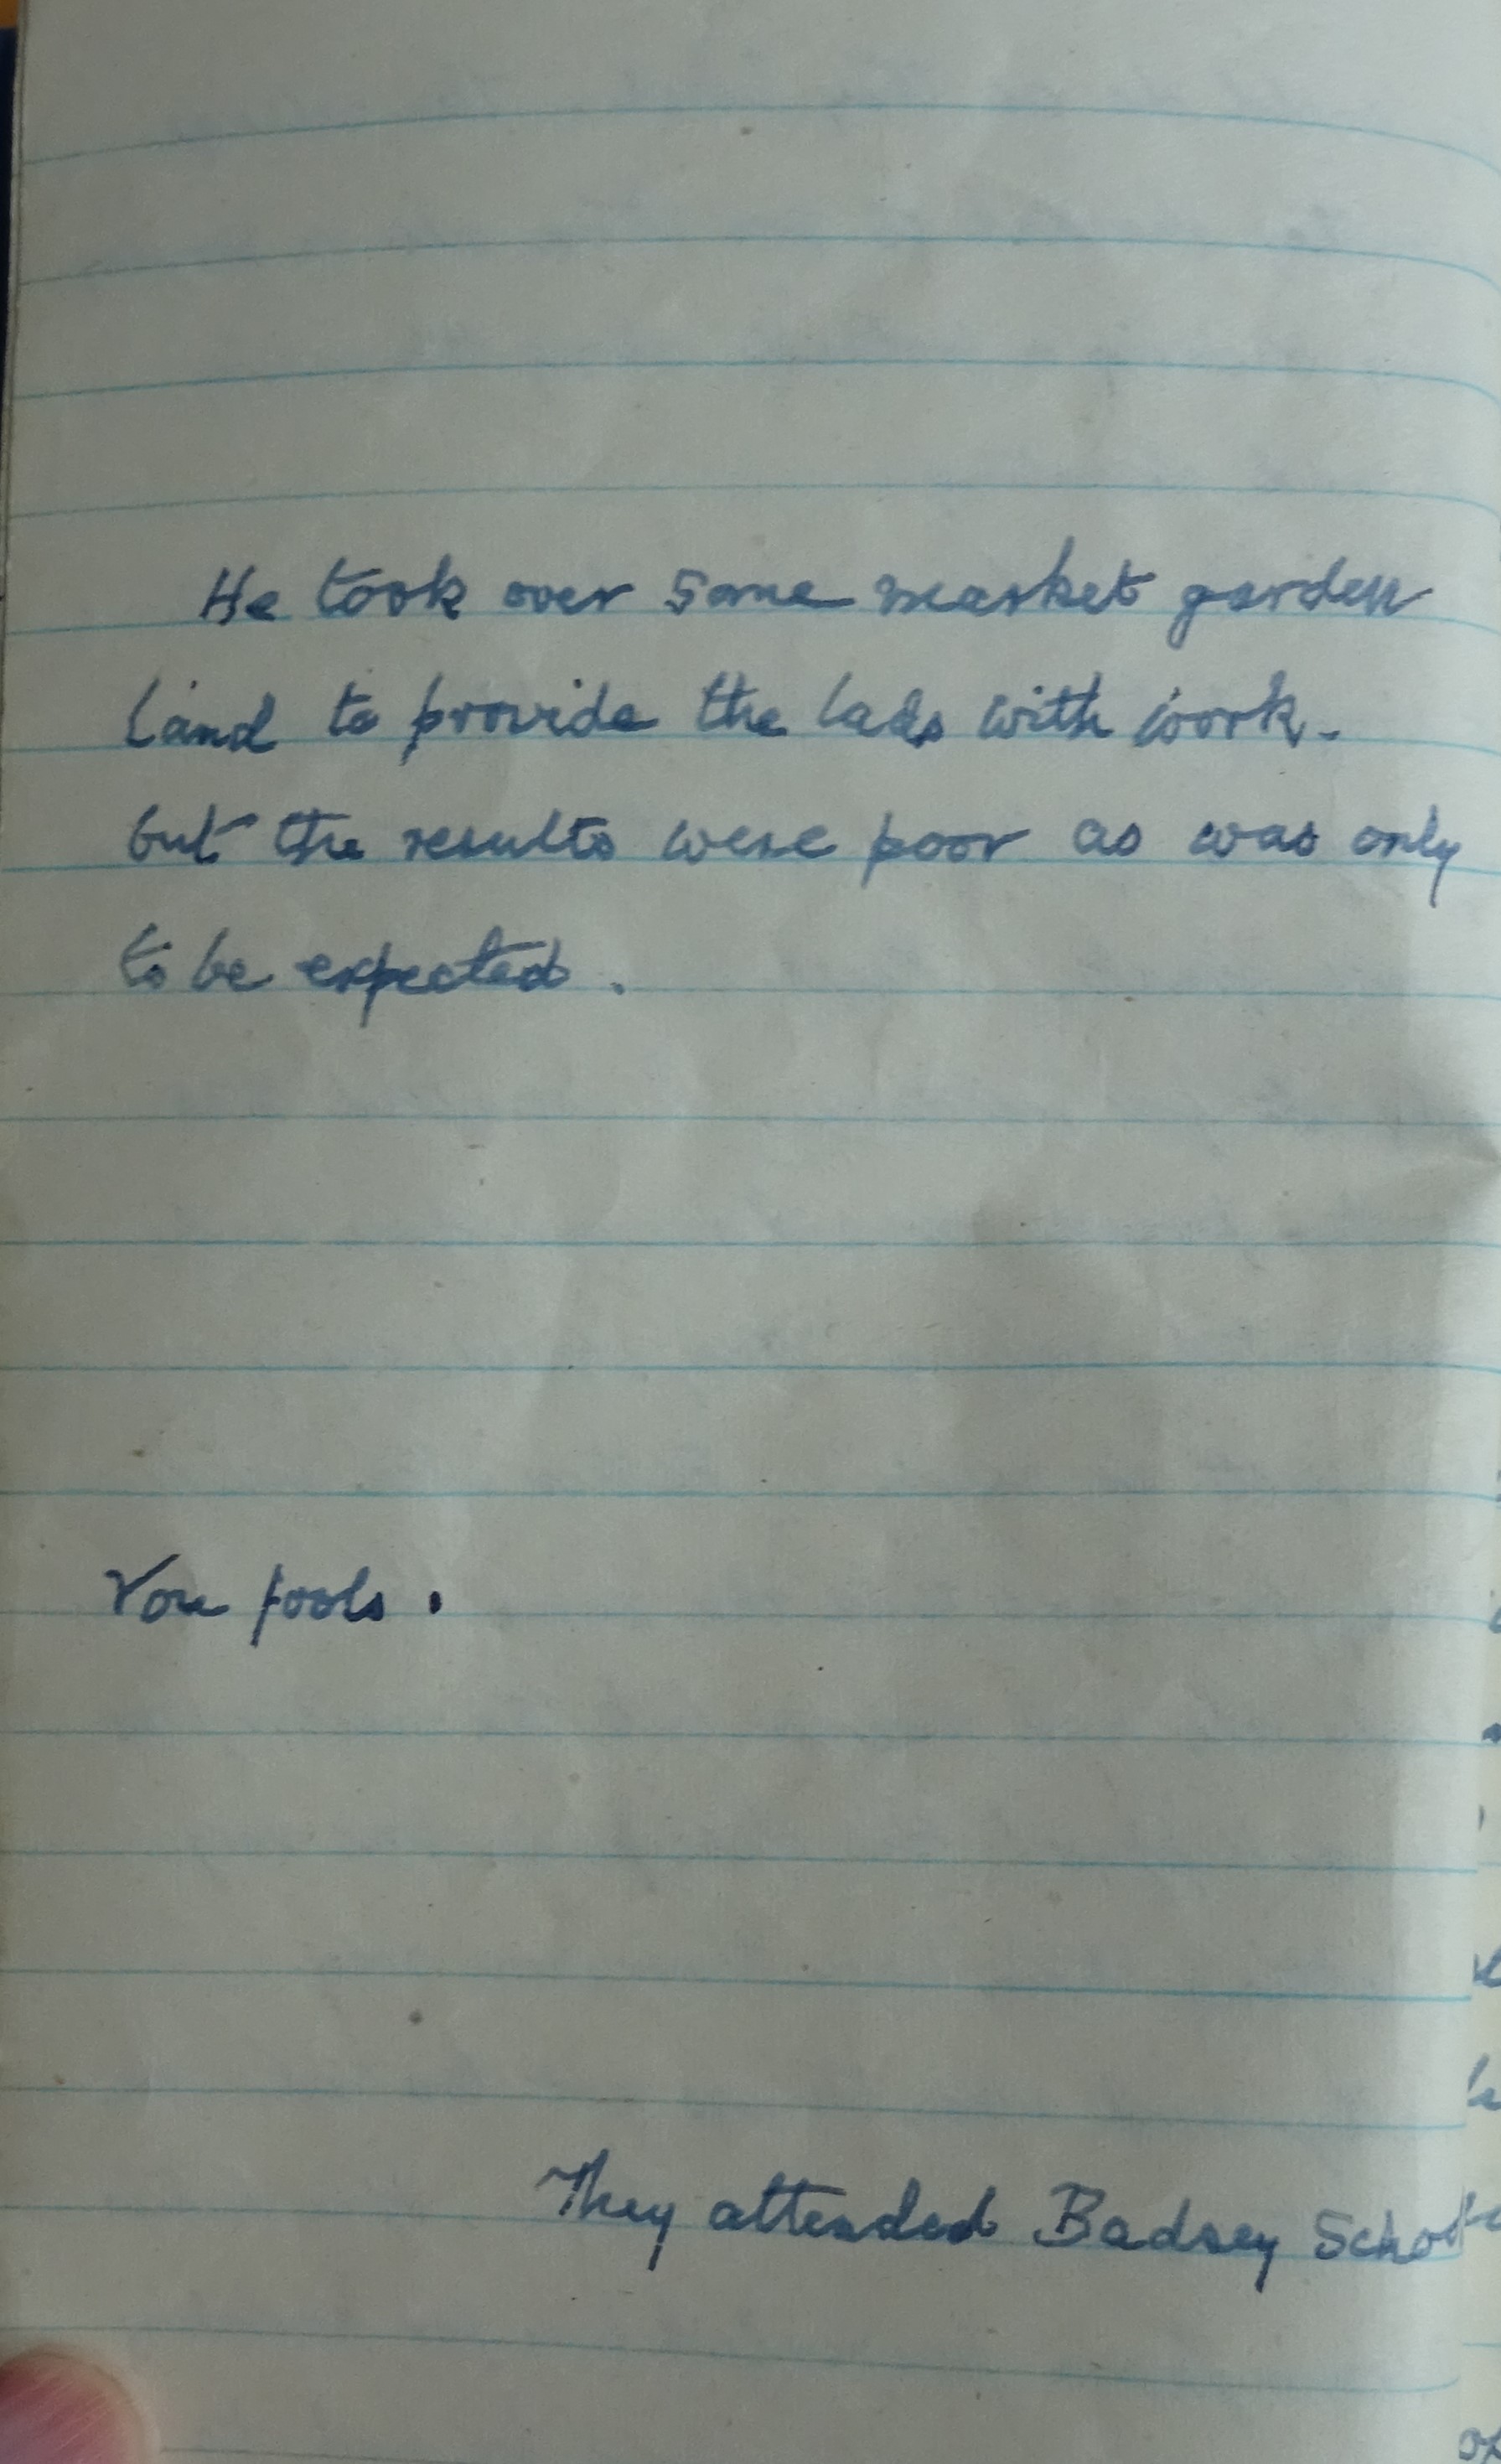 He took over some market garden
land to provide the lads with work.
but the results were poor as was only
to be expected.
You fools.
They attended Badsey School